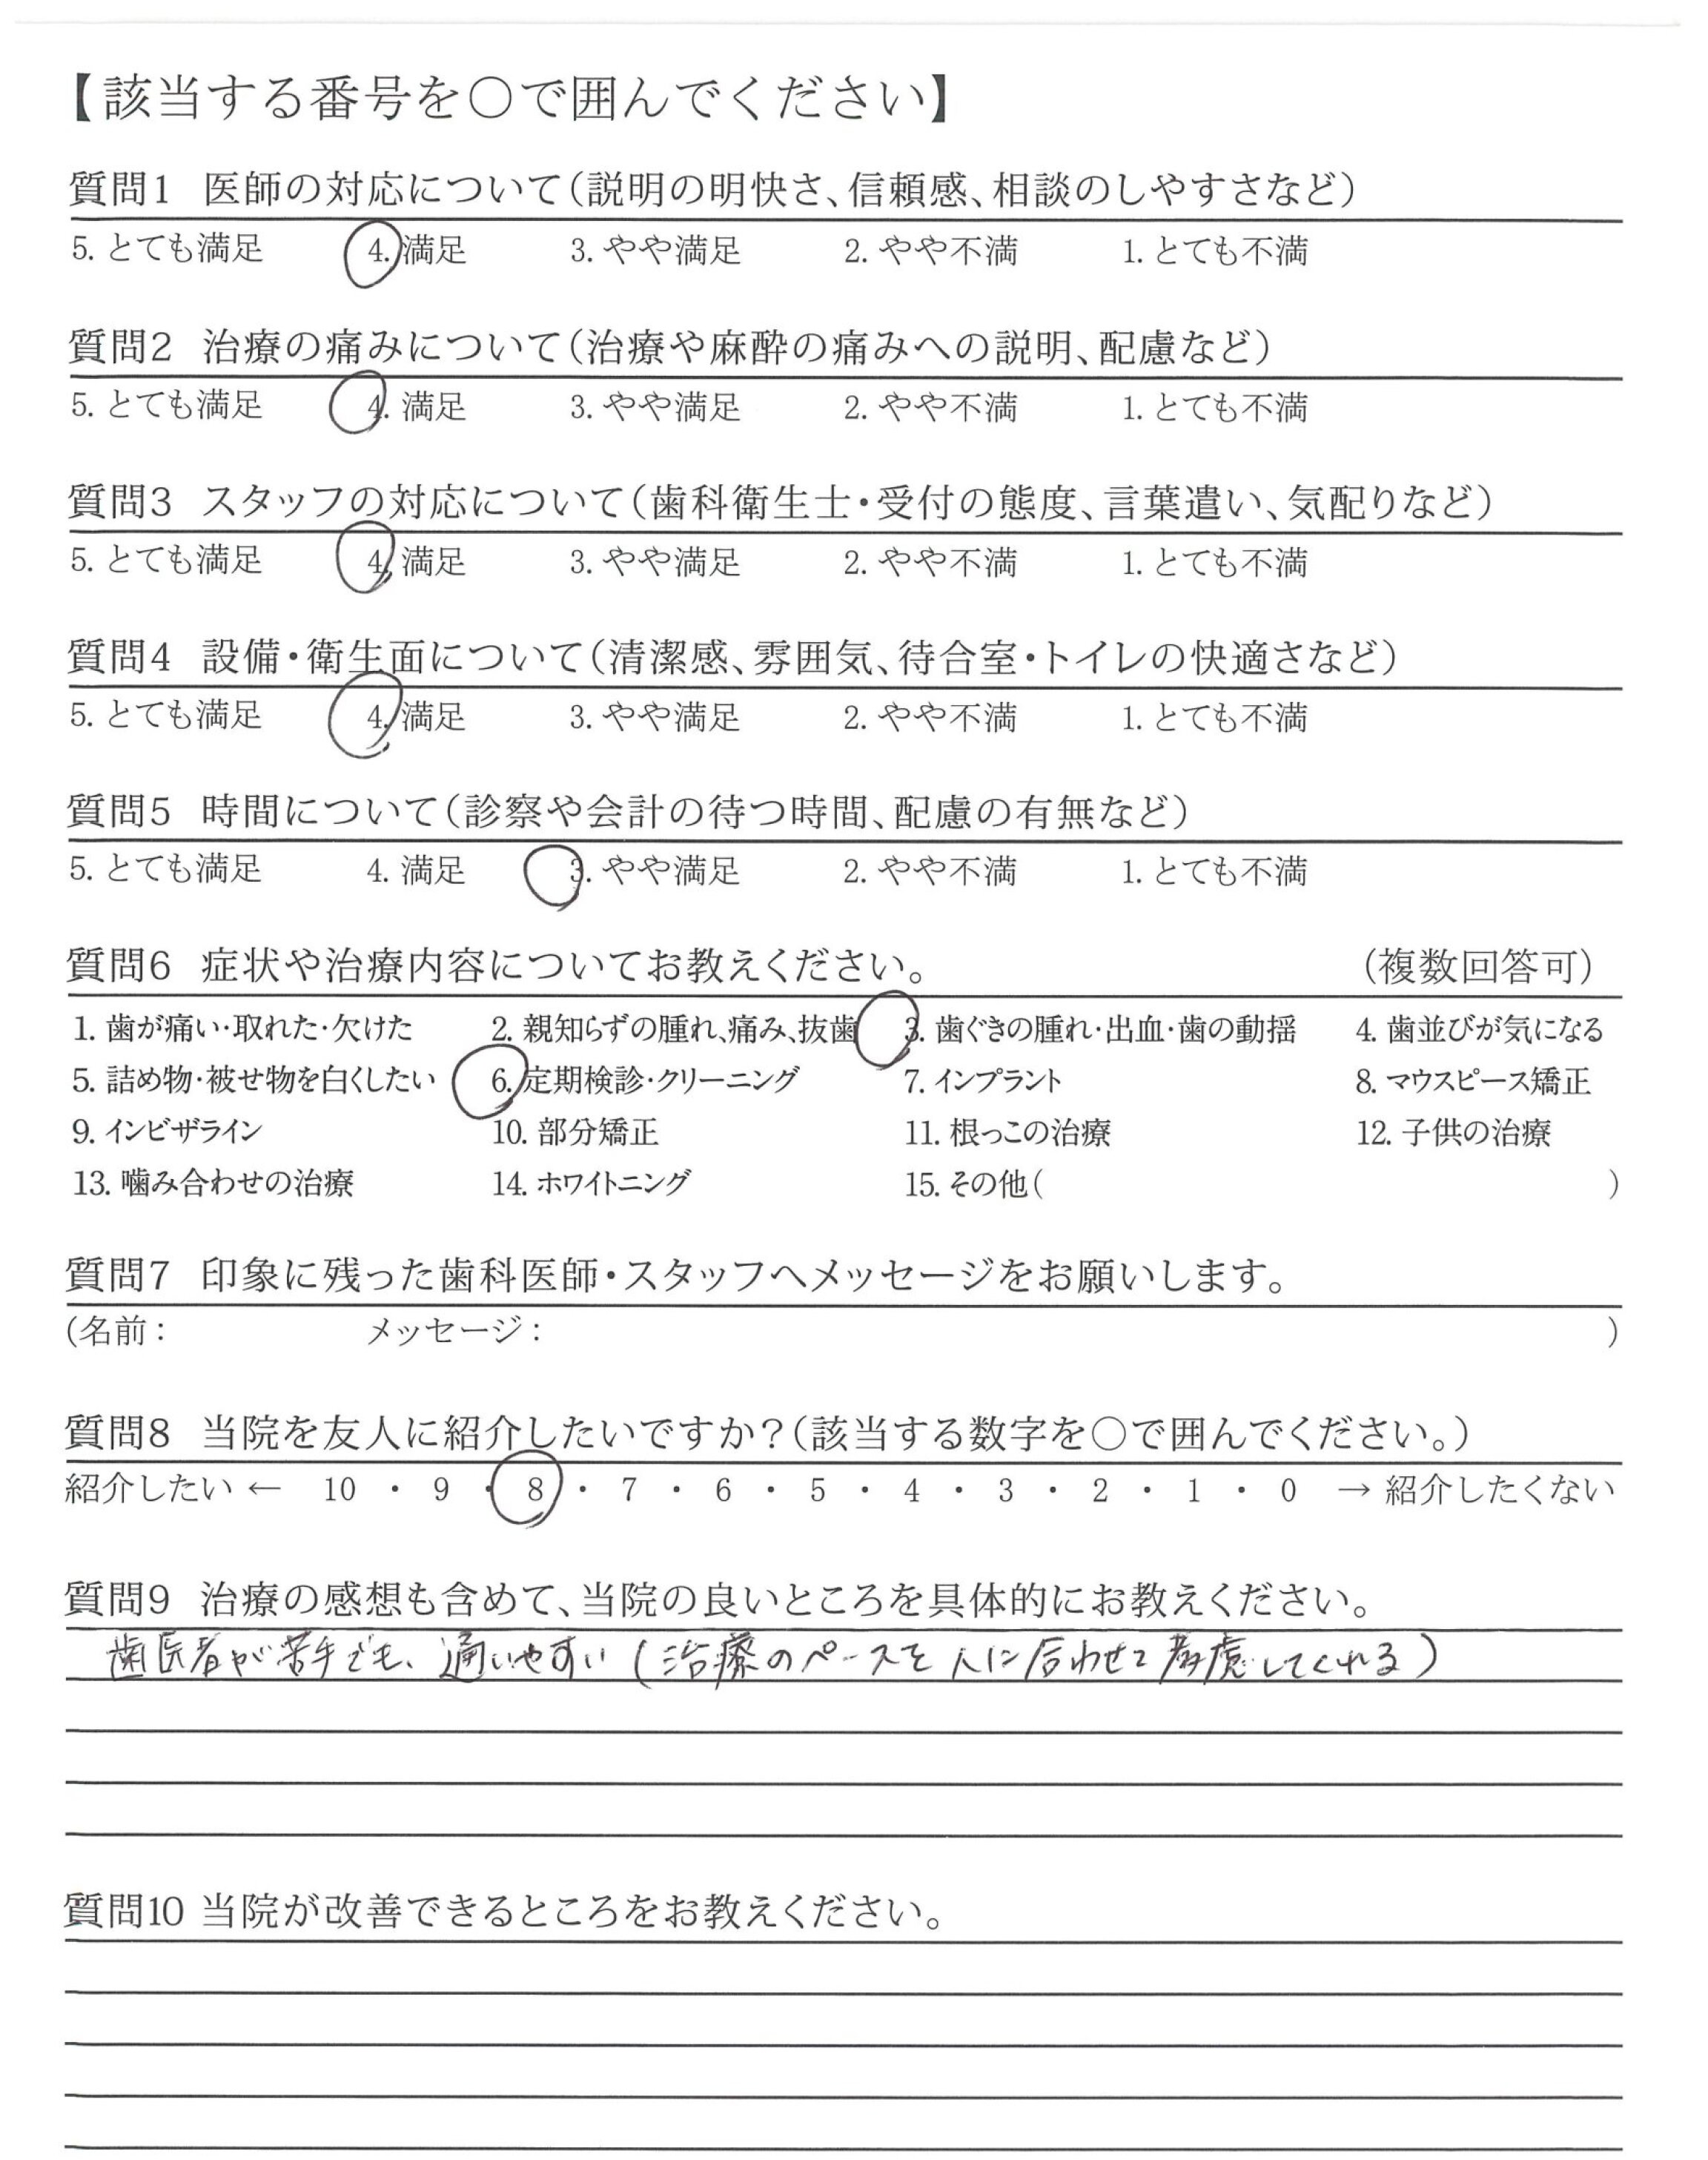 【該当する番号を○で囲んでください】
質問1 医師の対応について（説明の明快さ、信頼感、相談のしやすさなど）
5. とても満足 4. 満足 3. やや満足 2. やや不満 1. とても不満
質問2 治療の痛みについて（治療や麻酔の痛みへの説明、配慮など）
5. とても満足 4. 満足 3. やや満足 2. やや不満 1. とても不満
質問3 スタッフの対応について（歯科衛生士・受付の態度、言葉遣い、気配りなど）
5. とても満足 4. 満足 3. やや満足 2. やや不満 1. とても不満
質問4 設備・衛生面について（清潔感、雰囲気、待合室・トイレの快適さなど）
5. とても満足 4. 満足 3. やや満足 2. やや不満 1. とても不満
質問5 時間について（診察や会計の待つ時間、配慮の有無など）
5. とても満足 4. 満足 3. やや満足 2. やや不満 1. とても不満
質問6 症状や治療内容についてお教えください。 （複数回答可）
1. 歯が痛い・取れた・欠けた 2. 親知らずの腫れ、痛み、抜歯 3. 歯ぐきの腫れ・出血・歯の動揺 4. 歯並びが気になる
5. 詰め物・被せ物を白くしたい 6. 定期検診・クリーニング 7. インプラント 8. マウスピース矯正
9. インビザライン 10. 部分矯正 11. 根っこの治療 12. 子供の治療
13. 噛み合わせの治療 14. ホワイトニング 15. その他（ ）
質問7 印象に残った歯科医師・スタッフへメッセージをお願いします。
（名前： メッセージ： ）
質問8 当院を友人に紹介したいですか？（該当する数字を○で囲んでください。）
紹介したい ← 10 ・ 9 ・ 8 ・ 7 ・ 6 ・ 5 ・ 4 ・ 3 ・ 2 ・ 1 ・ 0 → 紹介したくない
質問9 治療の感想も含めて、当院の良いところを具体的にお教えください。
歯医者が苦手でも、通いやすい（治療のペースを人に合わせて考慮してくれる）
質問10 当院が改善できるところをお教えください。